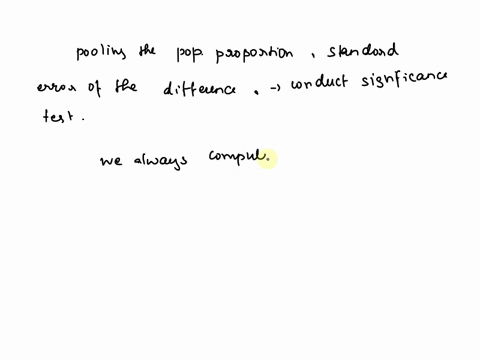 pooling the pop. proportion, standard
error of the difference. → conduct signficance
test.
we always compul.